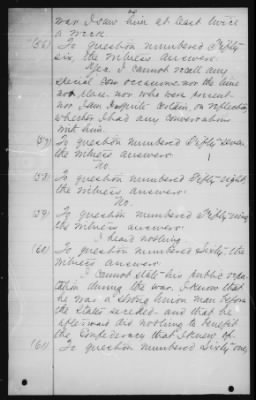 war. I saw him at least twice
a week.
(56) To question numbered Fifty
six, the witness answers:
Yes. I cannot recall any
special occasions, nor the time
nor place, nor who were present
nor I am certain, on reflection,
whether I had any conversations
with him.
(57) To question numbered Fifty seven,
the witness answers:
No.
(58) To question numbered Fifty eight,
the witness answers:
No.
(59) To question numbered Fifty nine,
the witness answers:
I heard nothing.
(60) To question numbered Sixty, the
witness answers:
I cannot state his public repu-
tation during the war. I know that
he was a strong Union man before
the States seceded, and that he
afterward did nothing to benefit
the Confederacy that I knew of.
(61) To question numbered Sixty one,